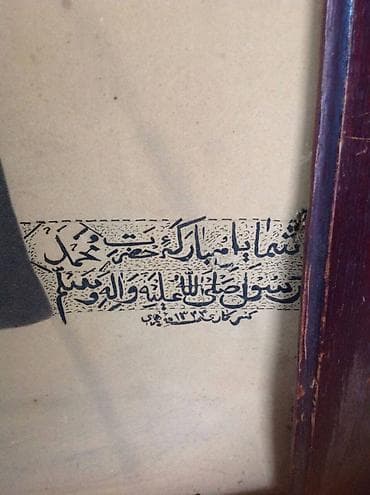 شمایل مبارکهٔ حضرت محمد
رسول صلی الله علیه و اله و سلم